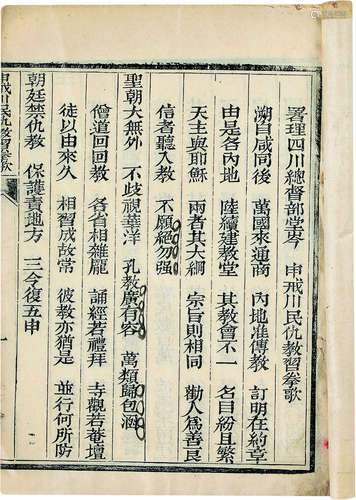 署理四川總督部堂岑 申戒川民仇教習拳歌
溯自咸同後 萬國來通商 內地准傳教 訂明在約章
由是各內地 陸續建教堂 其教會不一 名目紛且繁
天主與耶穌 兩者其大綱 宗旨則相同 勸人爲善良
信者聽入教 不願絕勿强
聖朝大無外 不歧視華洋 孔教廣有容 萬類歸包涵
僧道回回教 各省相雜龐 誦經若禮拜 寺觀若菴壇
徒以由來久 相習成故常 彼教亦猶是 並行何所防
朝廷禁仇教 保護責地方 三令復五申
申戒川民仇教習拳歌